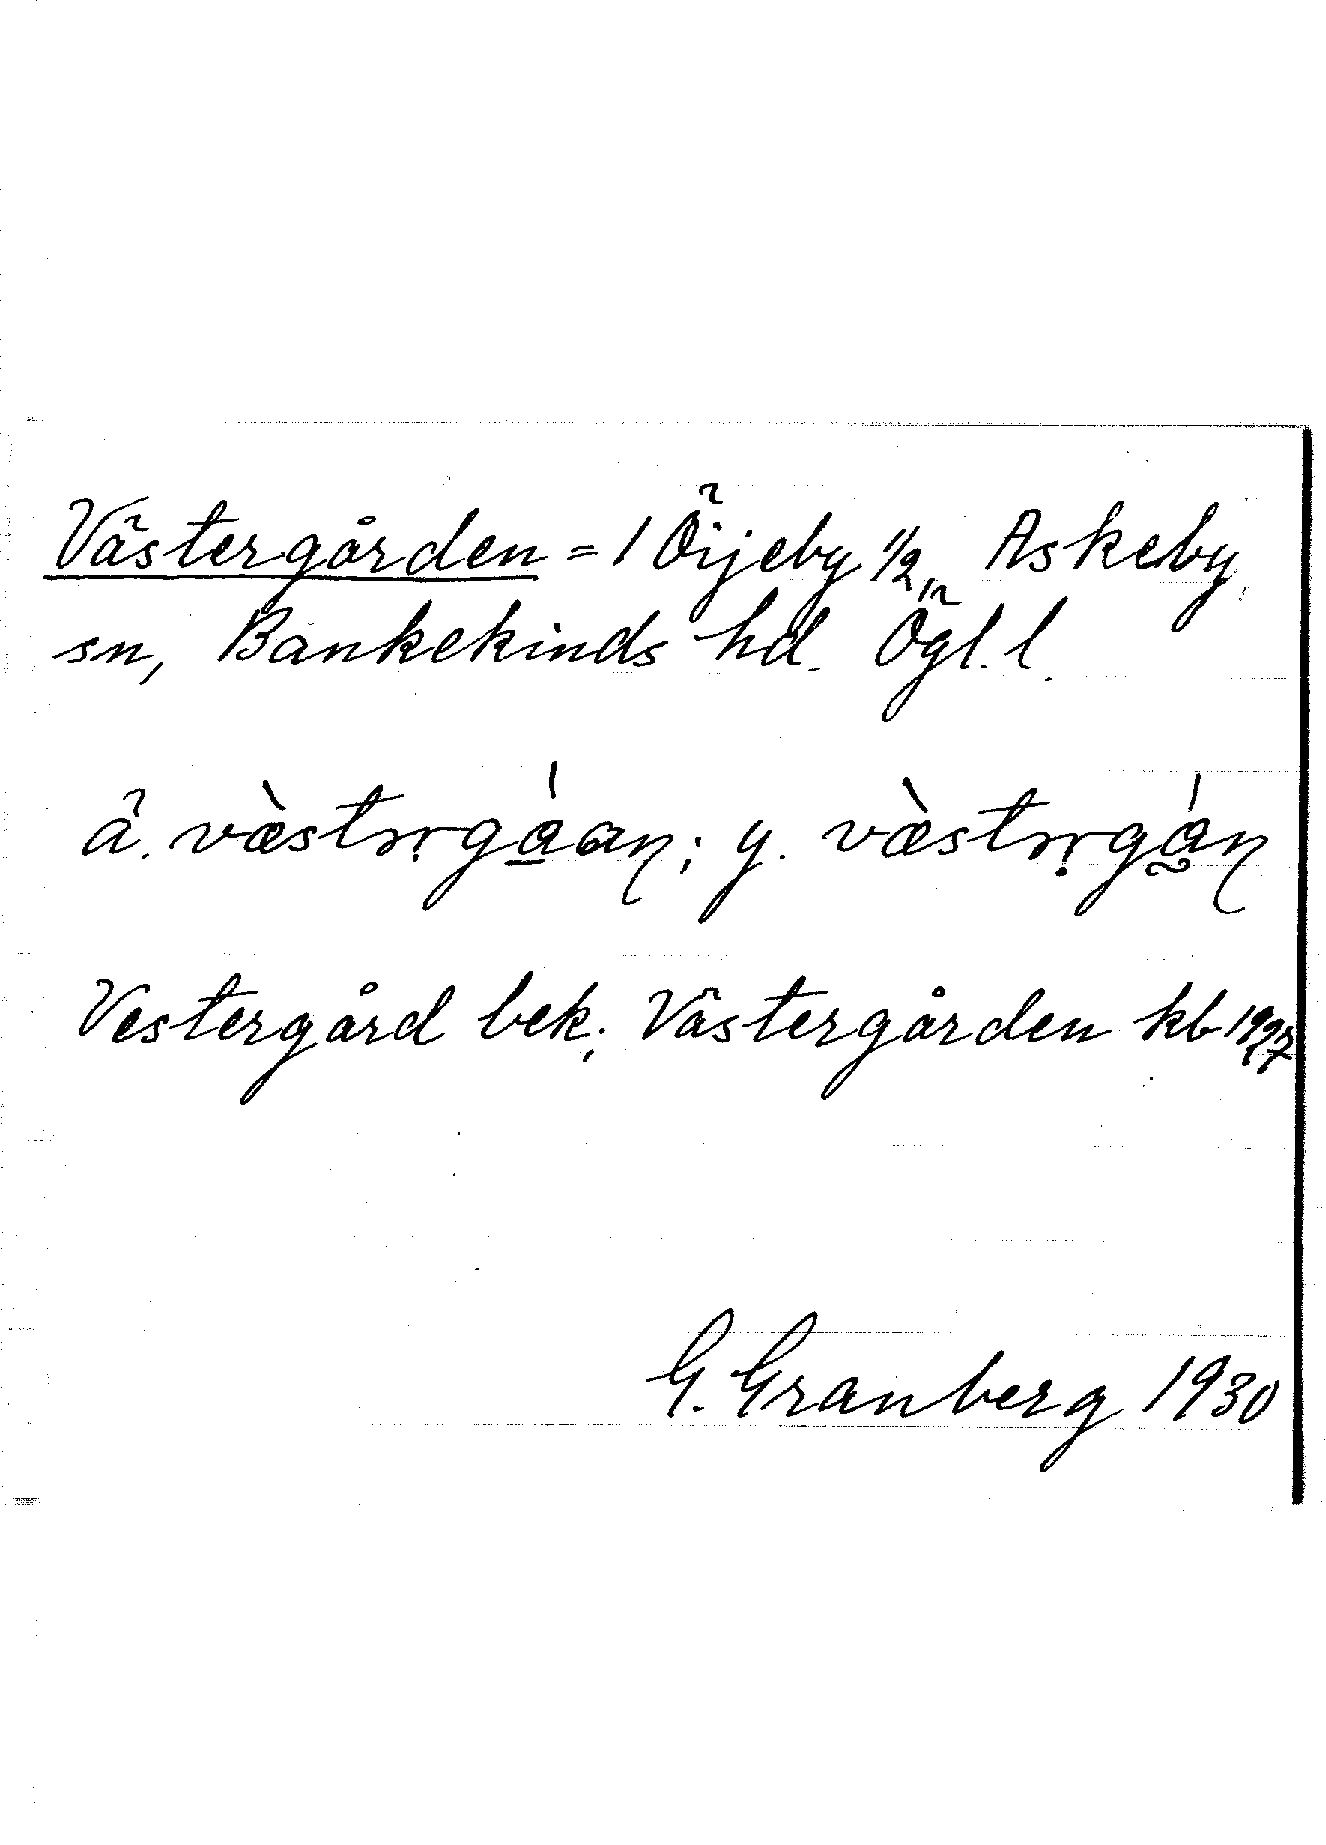 Västergården = 1 Öijeby 1/2, Askeby
sn, Bankekinds hd. Ögl. l.
ä. vàstɹrgáan; y. vàstɹrgán
Vestergård bek; Västergården kb 1927
G. Granberg 1930